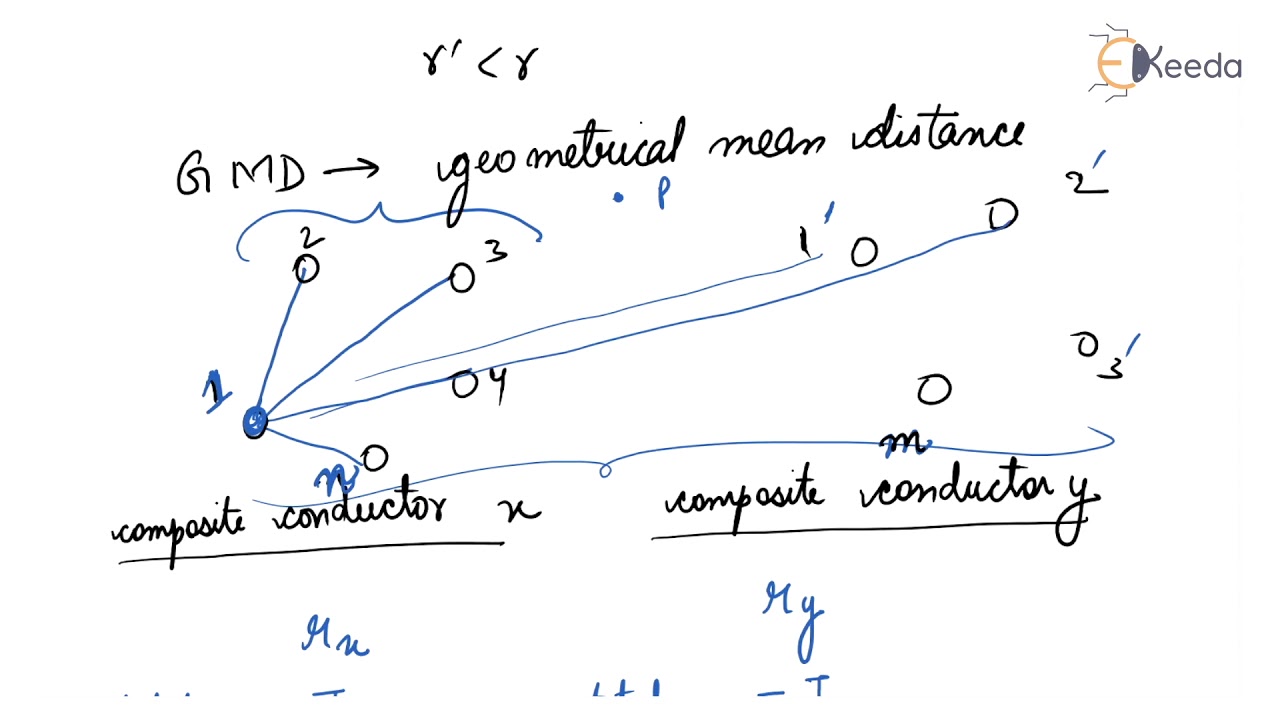 r' < r
EKeeda
GMD → geometrical mean distance
P
2'
2
3
1'
3'
1
4
n
m
composite conductor x
composite conductor y
rx
ry